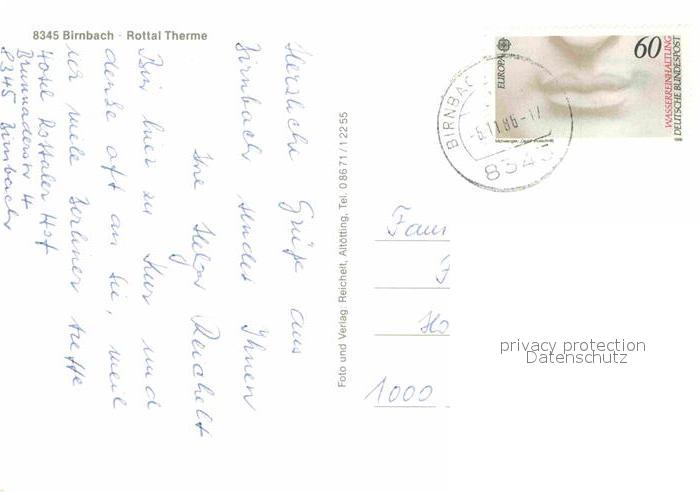 8345 Birnbach · Rottal Therme
Herzliche Grüße aus
Birnbach sendet Ihnen
Ihre Helga Reichelt
Bin hier zur Kur und
denke oft an Sie, weil
ich viele Berliner treffe
Hotel Rottaler Hof
Brunnaderstr 4
8345 Birnbach
Foto und Verlag Reichelt, Altötting, Tel. 08671/12255
EUROPA
60
WASSERREINHALTUNG
DEUTSCHE BUNDESPOST
BIRNBAC
-6.11.86-17
8345
Fam
Ho
1000
privacy protection
Datenschutz